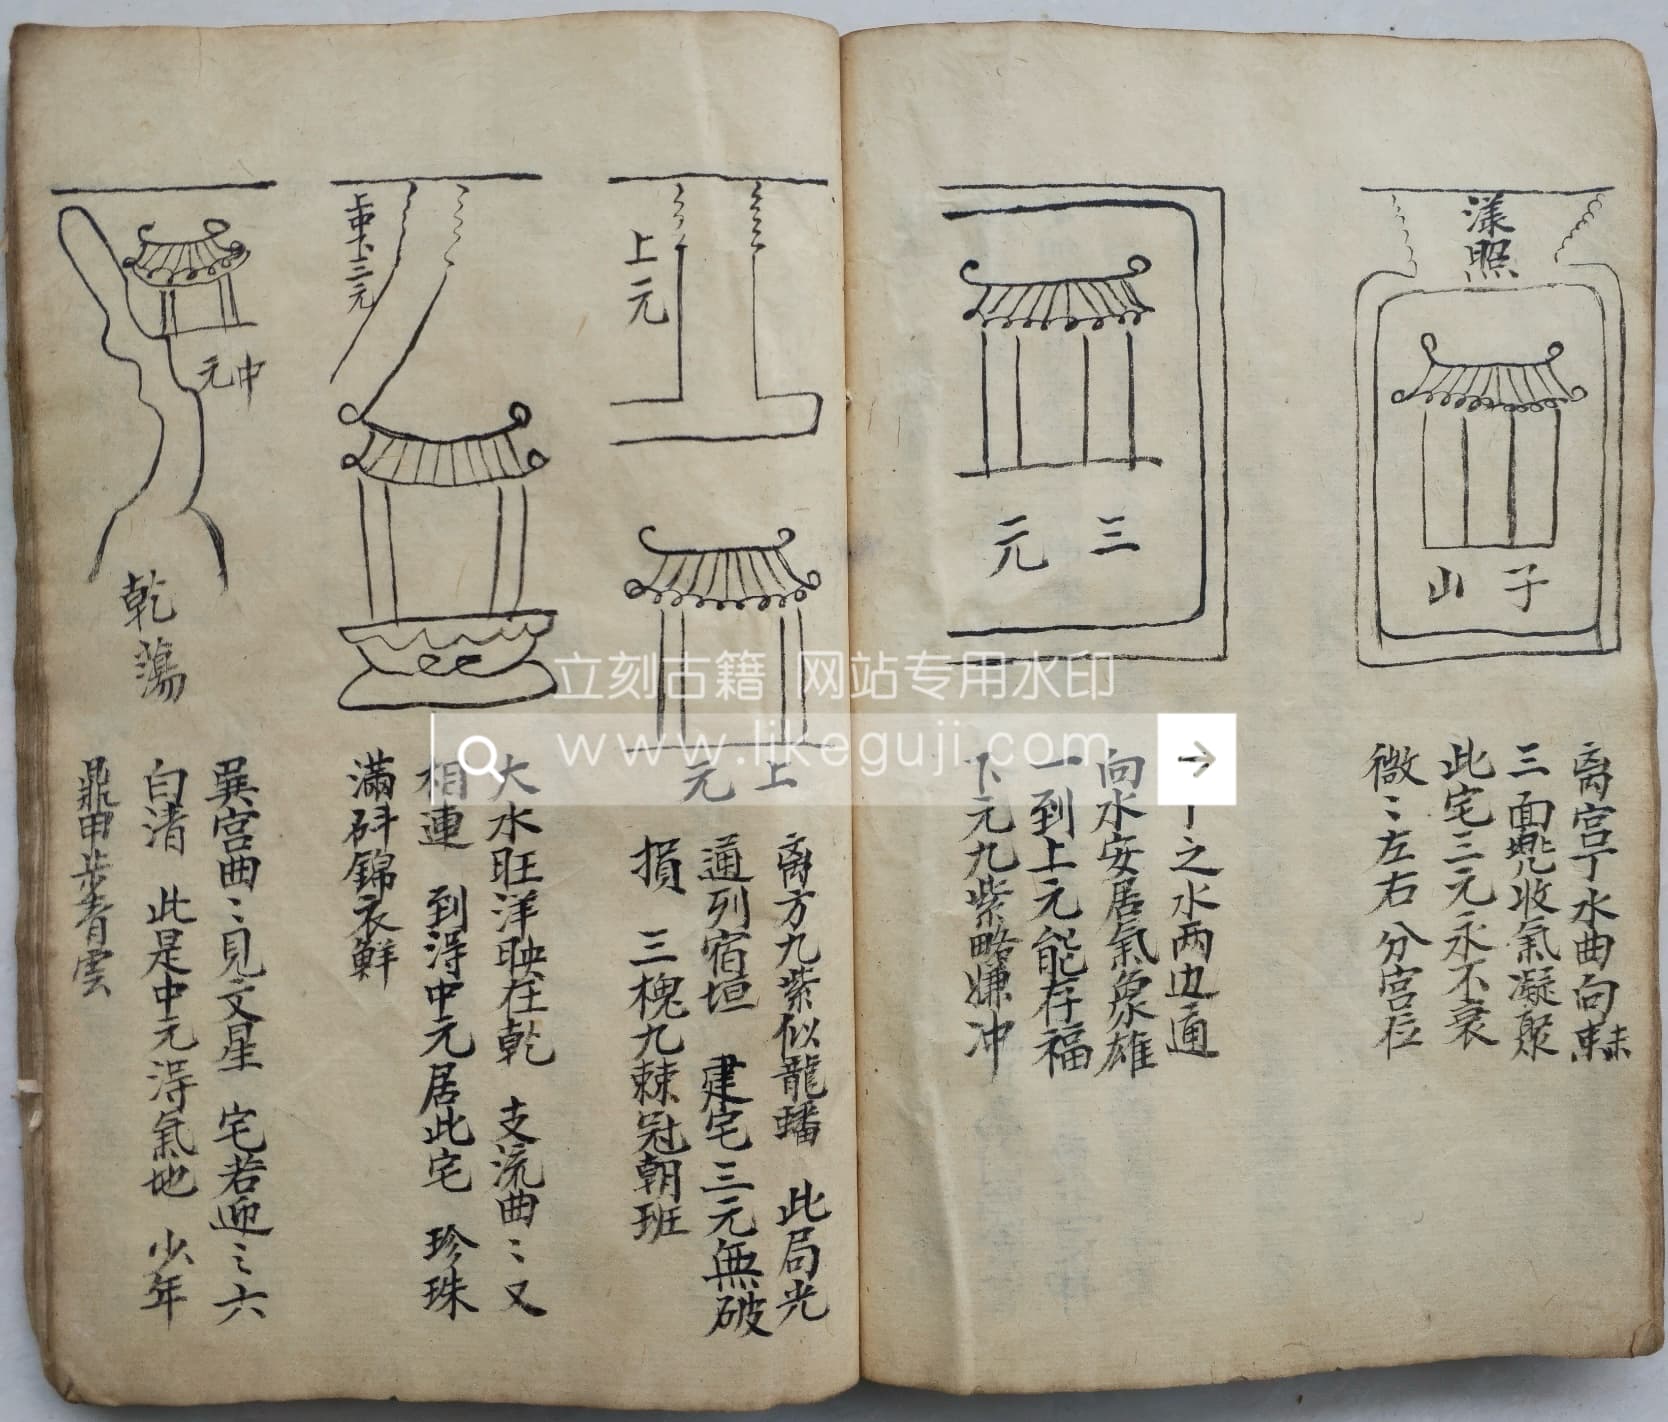 漾照
子山
离宫丁水曲向
三面兠收氣凝聚
此宅三元永不衰
微〻左右分宫位
三元
之水两边通
向水安居氣象雄
一到上元能存福
下元九紫略嫌冲
上元
上元
离方九紫似龍蟠 此局光
通列宿垣 建宅三元無破
損 三槐九棘冠朝班
上中下三元
大水旺洋映在乾 支流曲〻又
相連 到淂中元居此宅 珍珠
滿斗錦衣鮮
中元
乾蕩
巽宫曲〻見文星 宅若迎〻六
白清 此是中元淂氣地 少年
鼎甲步青雲
立刻古籍 网站专用水印
www.likeguji.com